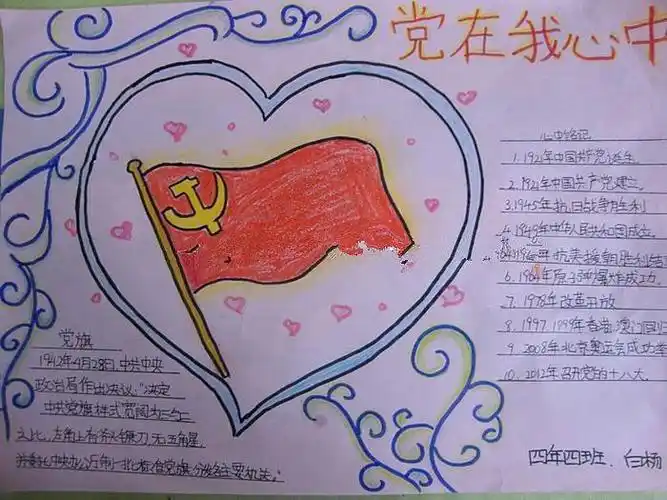 党在我心中
心中铭记
1.1921年中国共产党诞生
2.1921年中国共产党建立
3.1945年抗日战争胜利
4.1949年中华人民共和国成立
年抗美援朝胜利结
6.1964年原子弹爆炸成功
7.1978年改革开放
8.1997.1999年香港澳门回归
9.2008年北京奥运会成功举
10.2012年召开党的十八大
党旗
1942年4月28日中共中央
政治局作出决议："决定
中共党旗样式宽阔为三与二
之比，左角上有斧头镰刀，无五角星
并委托中央办公厅制一批标准党旗，分发各主要机关。"
四年四班、白杨